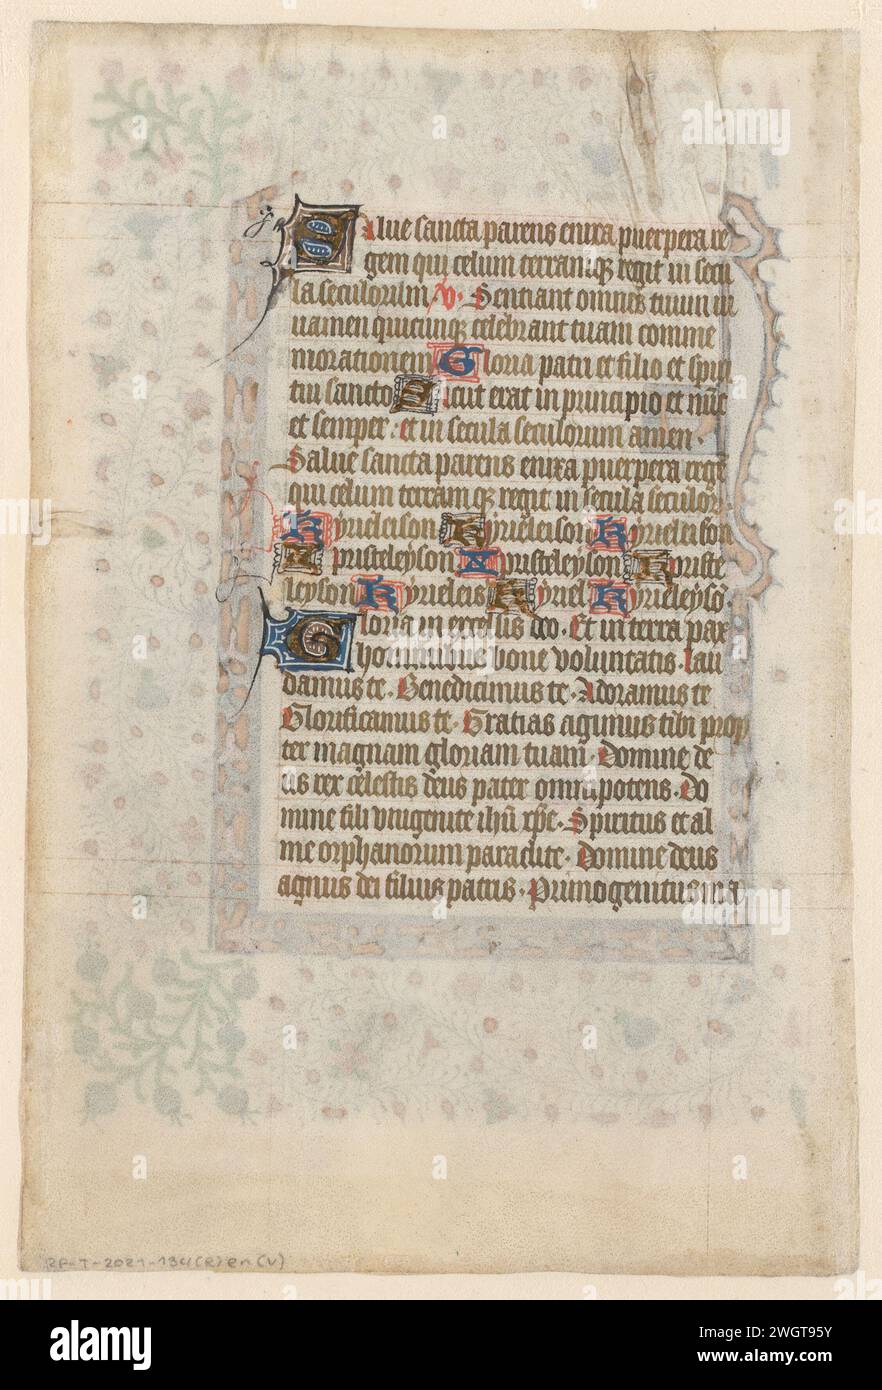 Salue sancta parens enixa puerpera re
gem qui celum terramq; regit in secu
la seculorum V. Sentiant omnes tuum iu
uamen quicunq; celebrant tuam comme
morationem Gloria patri et filio et spiri
tui sancto Sicut erat in principio et nūc
et semper: et in secula seculorum amen.
Salue sancta parens enixa puerpera regē
qui celum terramq; regit in secula seculor.
Kyrieleison Kyrieleison Kyrieleison
Xpristeleyson Xpristeleyson Xpriste
leyson Kyrieleis Kyriel Kyrieleysō.
Gloria in excelsis deo. Et in terra pax
hominibus bone voluntatis. Lau
damus te. Benedicimus te. Adoramus te
Glorificamus te. Gratias agimus tibi prop
ter magnam gloriam tuam. Domine de
us rex celestis deus pater omnipotens. Do
mine fili vnigenite ihū xp̄e. Spiritus et al
me orphanorum paraclite. Domine deus
agnus dei filius patris. Primogenitus ma
RP-T-2021-134(R) en (V)
alamy
Image ID: 2WGT95Y
www.alamy.com